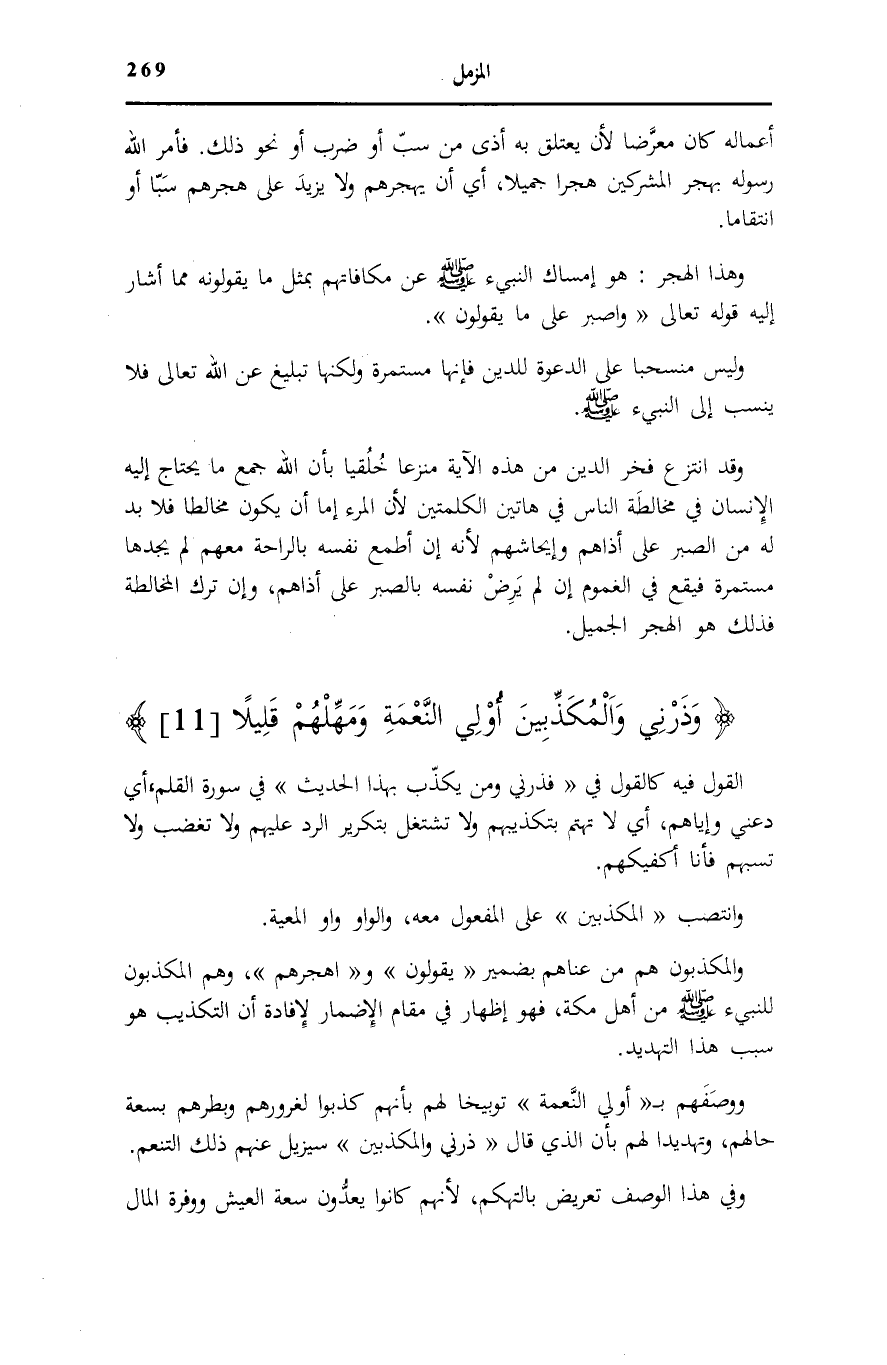 269
المزمل
أعماله كان معرَّضا لأن يعتلق به أذى من سبّ أو ضرب أو نحو ذلك. فأمر الله
رسوله بهجر المشركين هجرا جميلا، أي أن يهجرهم ولا يزيدَ على هجرهم سَبّا أو
انتقاما.
وهذا الهجر : هو إمساك النبيء ﷺ عن مكافاتهم بمثل ما يقولونه مما أشار
إليه قوله تعالى « واصبر على ما يقولون ».
وليس منسحبا على الدعوة للدين فإنها مستمرة ولكنها تبليغ عن الله تعالى فلا
ينسب إلى النبيء ﷺ.
وقد انتزع فخر الدين من هذه الآية منزعا خُلُقيا بأن الله جمع ما يحتاج إليه
الإِنسان في مخالطَة الناس في هاتين الكلمتين لأن المرء إما أن يكون مخالطا فلا بد
له من الصبر على أذاهم وإيحاشهم لأنه إن أطمع نفسه بالراحة معهم لم يجدها
مستمرة فيقع في الغموم إن لم يَرِضْ نفسه بالصبر على أذاهم، وإن ترك المخالطة
فذلك هو الهجر الجميل.
﴿ وَذَرْنِي وَالْمُكَذِّبِينَ أُوْلِي النَّعْمَةِ وَمَهِّلْهُمْ قَلِيلًا [11] ﴾
القول فيه كالقول في « فذرني ومن يكذّب بهذا الحديث » في سورة القلم،أي
دعني وإياهم، أي لا تهتم بتكذيبهم ولا تشتغل بتكرير الرد عليهم ولا تغضب ولا
تسبهم فأنا أكفيكهم.
وانتصب « المكذبين » على المفعول معه، والواو واو المعية.
والمكذبون هم من عناهم بضمير « يقولون » و« اهجرهم »، وهم المكذبون
للنبيء ﷺ من أهل مكة، فهو إظهار في مقام الإِضمار لإِفادة أن التكذيب هو
سبب هذا التهديد.
ووصَفَهم بـ« أولي النَّعمة » توبيخا لهم بأنهم كذبوا لغرورهم وبطرهم بسعة
حالهم، وتهديدا لهم بأن الذي قال « ذرني والمكذبين » سيزيل عنهم ذلك التنعم.
وفي هذا الوصف تعريض بالتهكم، لأنهم كانوا يعدُّون سعة العيش ووفرة المال